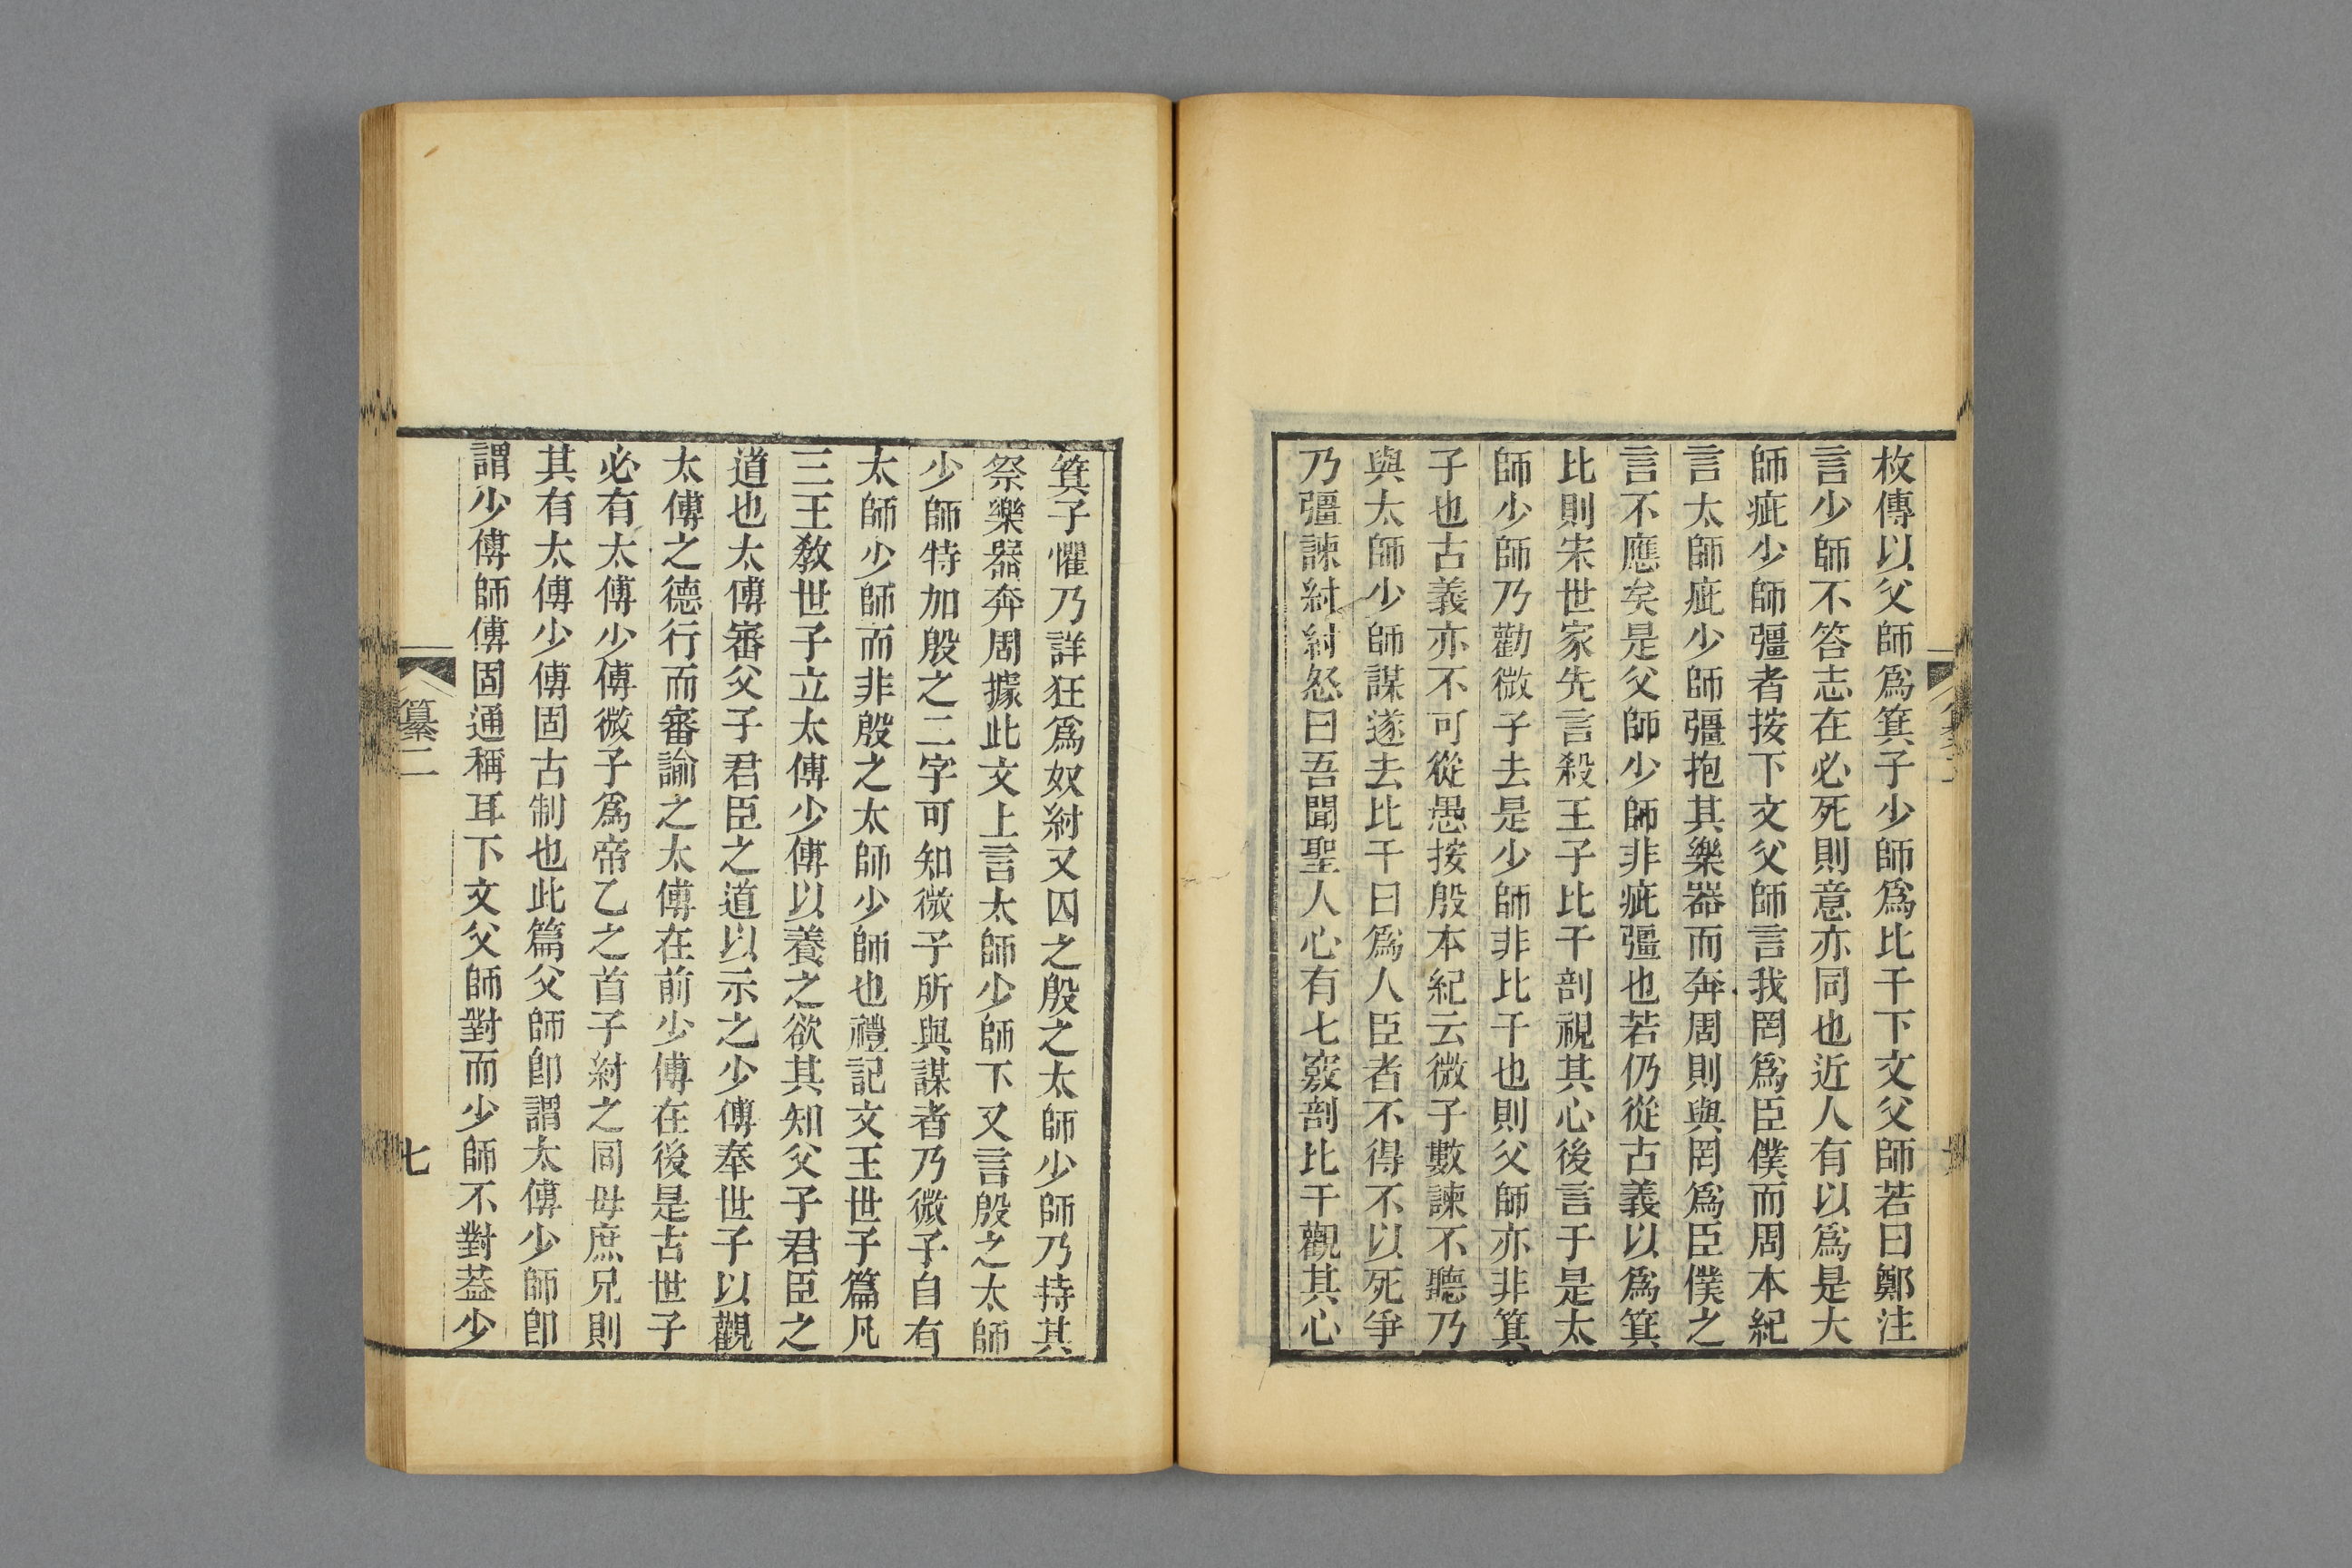 枚傳以父師爲箕子少師爲比干下文父師若曰鄭注
言少師不答志在必死則意亦同也近人有以爲是大
師疵少師彊者按下文父師言我罔爲臣僕而周本紀
言太師疵少師彊抱其樂器而奔周則與罔爲臣僕之
言不應矣是父師少師非疵彊也若仍從古義以爲箕
比則宋世家先言殺王子比干剖視其心後言于是太
師少師乃勸微子去是少師非比干也則父師亦非箕
子也古義亦不可從愚按殷本紀云微子數諫不聽乃
與太師少師謀遂去比干曰爲人臣者不得不以死爭
乃彊諫紂紂怒曰吾聞聖人心有七竅剖比干觀其心
箕子懼乃詳狂爲奴紂又囚之殷之太師少師乃持其
祭樂器奔周據此文上言太師少師下又言殷之太師
少師特加殷之二字可知微子所與謀者乃微子自有
太師少師而非殷之太師少師也禮記文王世子篇凡
三王敎世子立太傅少傅以養之欲其知父子君臣之
道也太傅審父子君臣之道以示之少傅奉世子以觀
太傅之德行而審諭之太傅在前少傅在後是古世子
必有太傅少傅微子爲帝乙之首子紂之同母庶兄則
其有太傅少傅固古制也此篇父師卽謂太傅少師卽
謂少傅師傅固通稱耳下文父師對而少師不對葢少
纂二
七